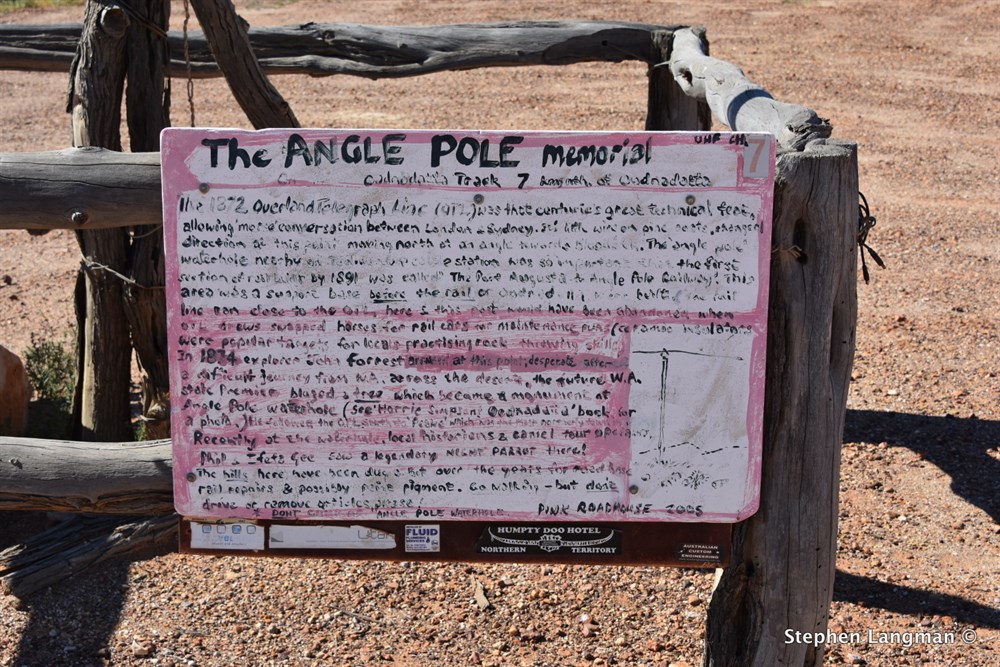 The ANGLE POLE memorial
UHF CH.
7
Oodnadatta Track 7 of Oodnadatta
The 1872 Overland Telegraph Line (OTL) was that centurie's great technical feat,
allowing morse conversation between London & Sydney. Its wire on pine posts, changed
direction at this point moving north at an angle towards The angle pole
waterhole nearby station was so important that the first
section of rail by 1891 was called "The Port Augusta to Angle Pole Railway". This
area was a support base before the rail
line ran close to the OTL, here & this post would have been abandoned when
swapped horses for rail cars for maintenance runs (ceramic insulators
were popular targets for locals practising rock throwing skills)
In 1874 explorer John Forrest arrived at this point, desperate after
a difficult journey from W.A. across the desert, the future W.A.
state Premier blazed a tree which became a monument at
Angle Pole waterhole (see 'Horrie Simpson's Oodnadatta' book for
a photo.)
Recently at the waterhole, local historians & camel tour operators,
Phil & Ifeta Gee saw a legendary NIGHT PARROT there!
The hills here have been dug out over the years for road base
rail repairs & possibly pigment. Go walking - but dont
drive or remove articles please!
DONT ANGLE POLE WATERHOLE
PINK ROADHOUSE 2005
FLUID
HUMPTY DOO HOTEL
NORTHERN TERRITORY
AUSTRALIAN
CUSTOM
ENGINEERING
Stephen Langman ©